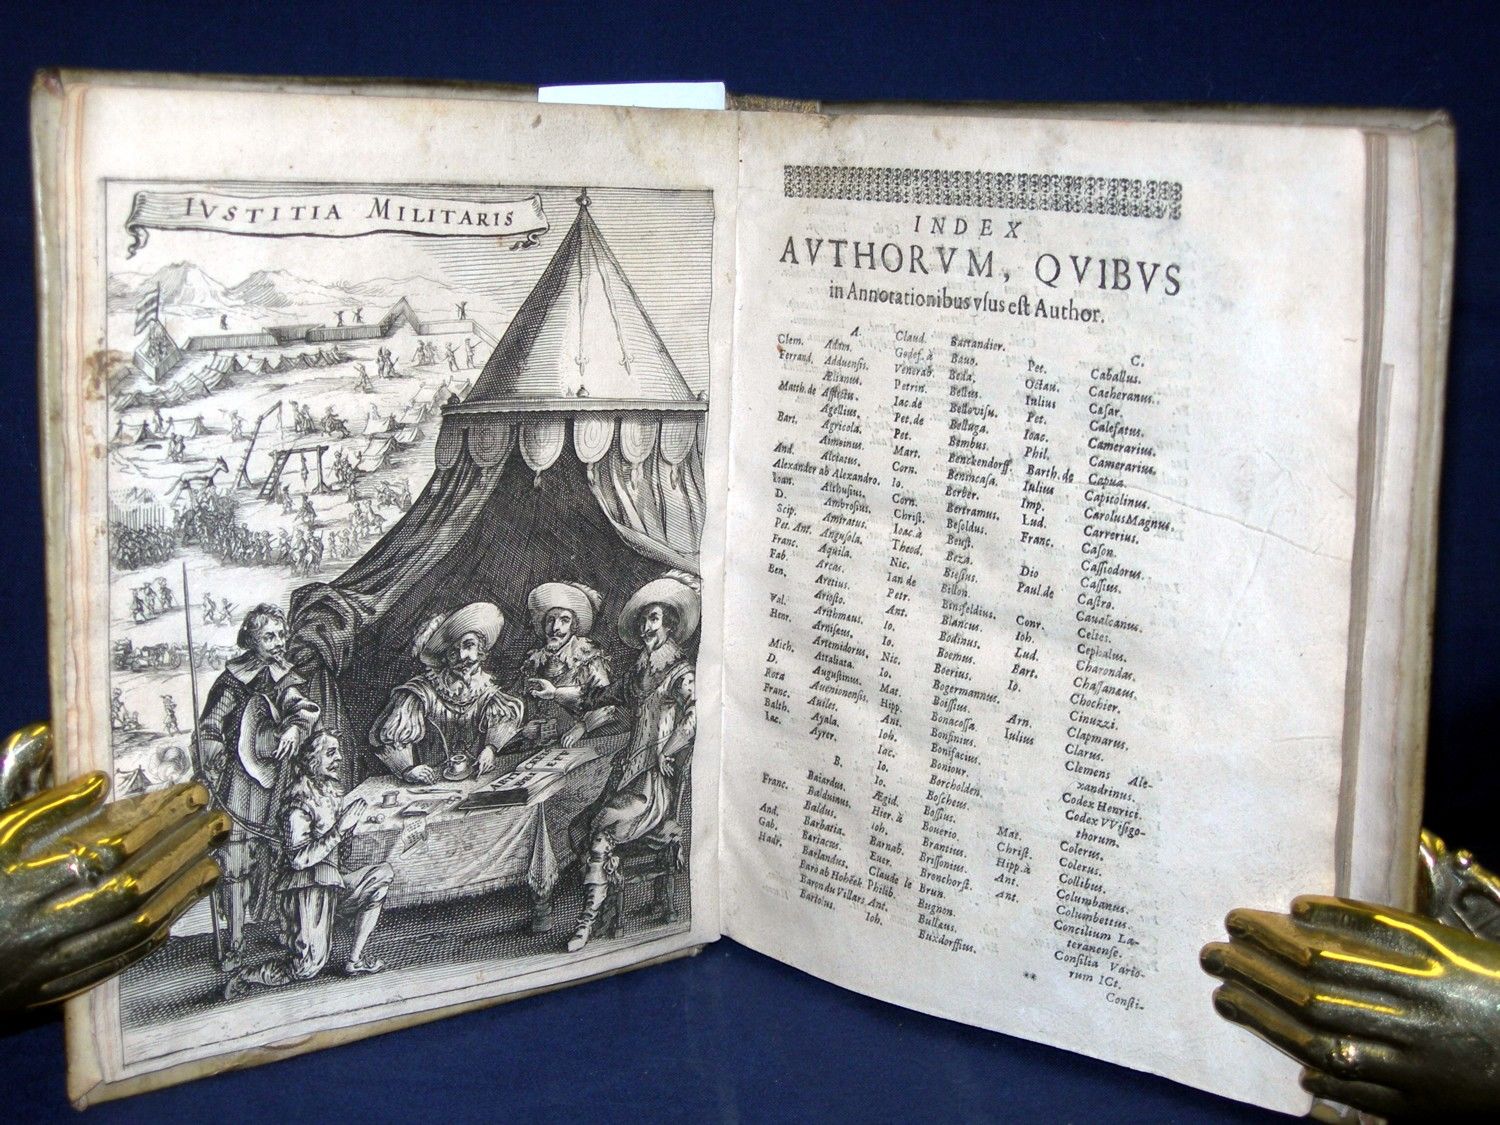 IVSTITIA MILITARIS
INDEX
AVTHORVM, QVIBVS
in Annotationibus vſus eſt Author.
A.
Clem. Adam.
Ferrand. Adduenſis.
Ælianus.
Matth. de Afflictis.
Agellius.
Bart. Agricola.
Aimoinus.
And. Alciatus.
Alexander ab Alexandro.
Ioan. Althuſius.
D. Ambroſius.
Scip. Amiratus.
Pet. Ant. Anguſola.
Franc. Aquila.
Fab. Arcas.
Ben. Aretius.
Arioſto.
Val. Arithmæus.
Henr. Arniſæus.
Artemidorus.
Mich. Attaliata.
D. Auguſtinus.
Rota Auenionenſis.
Franc. Auiles.
Balth. Ayala.
Iac. Ayrer.
B.
Baiardus.
Franc. Balduinus.
Baldus.
And. Barbatia.
Gab. Bariacus.
Hadr. Barlandus.
Baro ab Hohĕek
Baron du Villars
Bartolus.
Claud. Battandier.
Godef. à Baun.
Venerab. Beda.
Petrin. Bellus.
Iac. de Belloviſu.
Pet. de Belluga.
Pet. Bembus.
Mart. Benckendorff.
Corn. Benincaſa.
Io. Berber.
Corn. Bertramus.
Chriſt. Beſoldus.
Ioac. à Beuſt.
Theod. Beza.
Nic. Bieſius.
Ian de Billon.
Petr. Binsfeldius.
Ant. Blancus.
Io. Bodinus.
Io. Boemus.
Nic. Boerius.
Io. Bogermannus.
Mat. Boiſſius.
Hipp. Bonacoſſa
Ant. Bonfinius.
Ioh. Bonifacius.
Iac. Boniour.
Io. Borcholden.
Io. Boſcheus.
Ægid. Boſſius.
Hier. à Bouerio.
Ioh. Brantius.
Barnab. Briſſonius.
Euer. Bronchorſt.
Claude le Brun.
Philib. Bugnon.
Ant. Bullæus.
Ioh. Buxdorffius.
C.
Pet. Caballus.
Octau. Cacheranus.
Iulius Cæſar.
Pet. Calefatus.
Ioac. Camerarius.
Phil. Camerarius.
Barth. de Capua.
Iulius Capitolinus.
Imp. Carolus Magnus.
Lud. Carrerius.
Franc. Caſon.
Caſſiodorus.
Dio Caſſius.
Paul. de Caſtro.
Caualcanus.
Conr. Celtes.
Ioh. Cephalus.
Lud. Charondas.
Bart. Chaſſanæus.
Io. Chochier.
Cinuzzi.
Arn. Clapmarus.
Iulius Clarus.
Clemens Ale-
xandrinus.
Codex Henrici.
Codex VViſigo-
thorum.
Mat. Colerus.
Chriſt. Colerus.
Hipp. à Collibus.
Ant. Columbanus.
Ant. Columbettus.
Concilium La-
teranenſe.
Conſilia Vario-
rum ICt.
** Conſti-